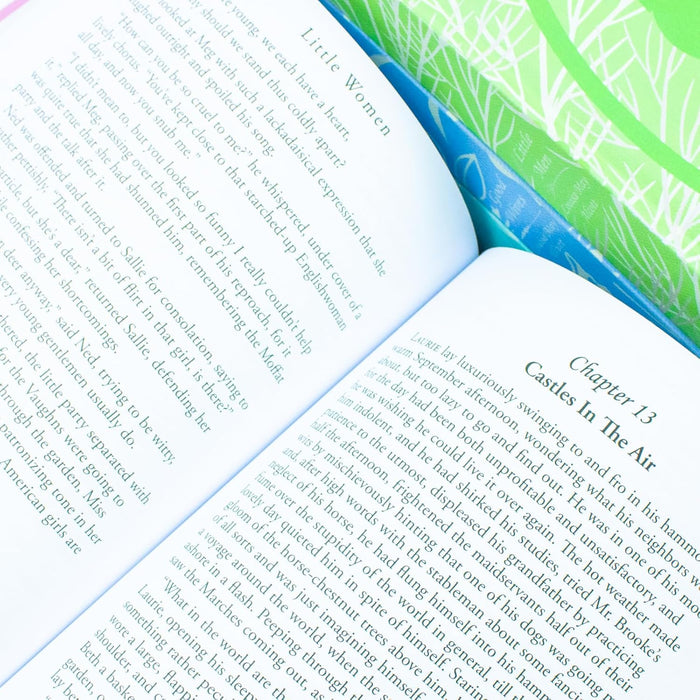 Little Women
young, we each have a heart,
should we stand thus coldly apart?
looked at Meg with such a lackadaisical expression that she
outright and spoiled his song.
"How can you be so cruel to me?" he whispered, under cover of a
lively chorus. "You've kept close to that starched-up Englishwoman
all day, and now you snub me."
"I didn't mean to, but you looked so funny I really couldn't help
it," replied Meg, passing over the first part of his reproach, for it
was quite true that she had shunned him, remembering the Moffat
party and the talk after it.
Ned was offended and turned to Sallie for consolation, saying to
her pettishly, "There isn't a bit of flirt in that girl, is there?"
but she's a dear," returned Sallie, defending her
confessing her shortcomings.
deer anyway," said Ned, trying to be witty,
very young gentlemen usually do.
the little party separated with
the Vaughns were going to
through the garden, Miss
patronizing tone in her
American girls are
Chapter 13
Castles In The Air
LAURIE lay luxuriously swinging to and fro in his hammock
warm September afternoon, wondering what his neighbors w
about, but too lazy to go and find out. He was in one of his
for the day had been both unprofitable and unsatisfactory, and
he was wishing he could live it over again. The hot weather made
him indolent, and he had shirked his studies, tried Mr. Brooke's
patience to the utmost, displeased his grandfather by practicing
half the afternoon, frightened the maidservants half out of their
wits by mischievously hinting that one of his dogs was going
and, after high words with the stableman about some fan
neglect of his horse, he had flung himself into his ham
fume over the stupidity of the world in general, till
lovely day quieted him in spite of himself. Staring
gloom of the horse-chestnut trees above him,
of all sorts and was just imagining himself
a voyage around the world, when the so
ashore in a flash. Peeping through the
saw the Marches coming out, as if
"What in the world are those
Laurie, opening his sleepy
something rather pec
wore a large, flappi
shoulder, and c
Beth a baske
garden, o
lay bet
Little Men
Louisa May Alcott
Good Wives
Louisa May Alcott